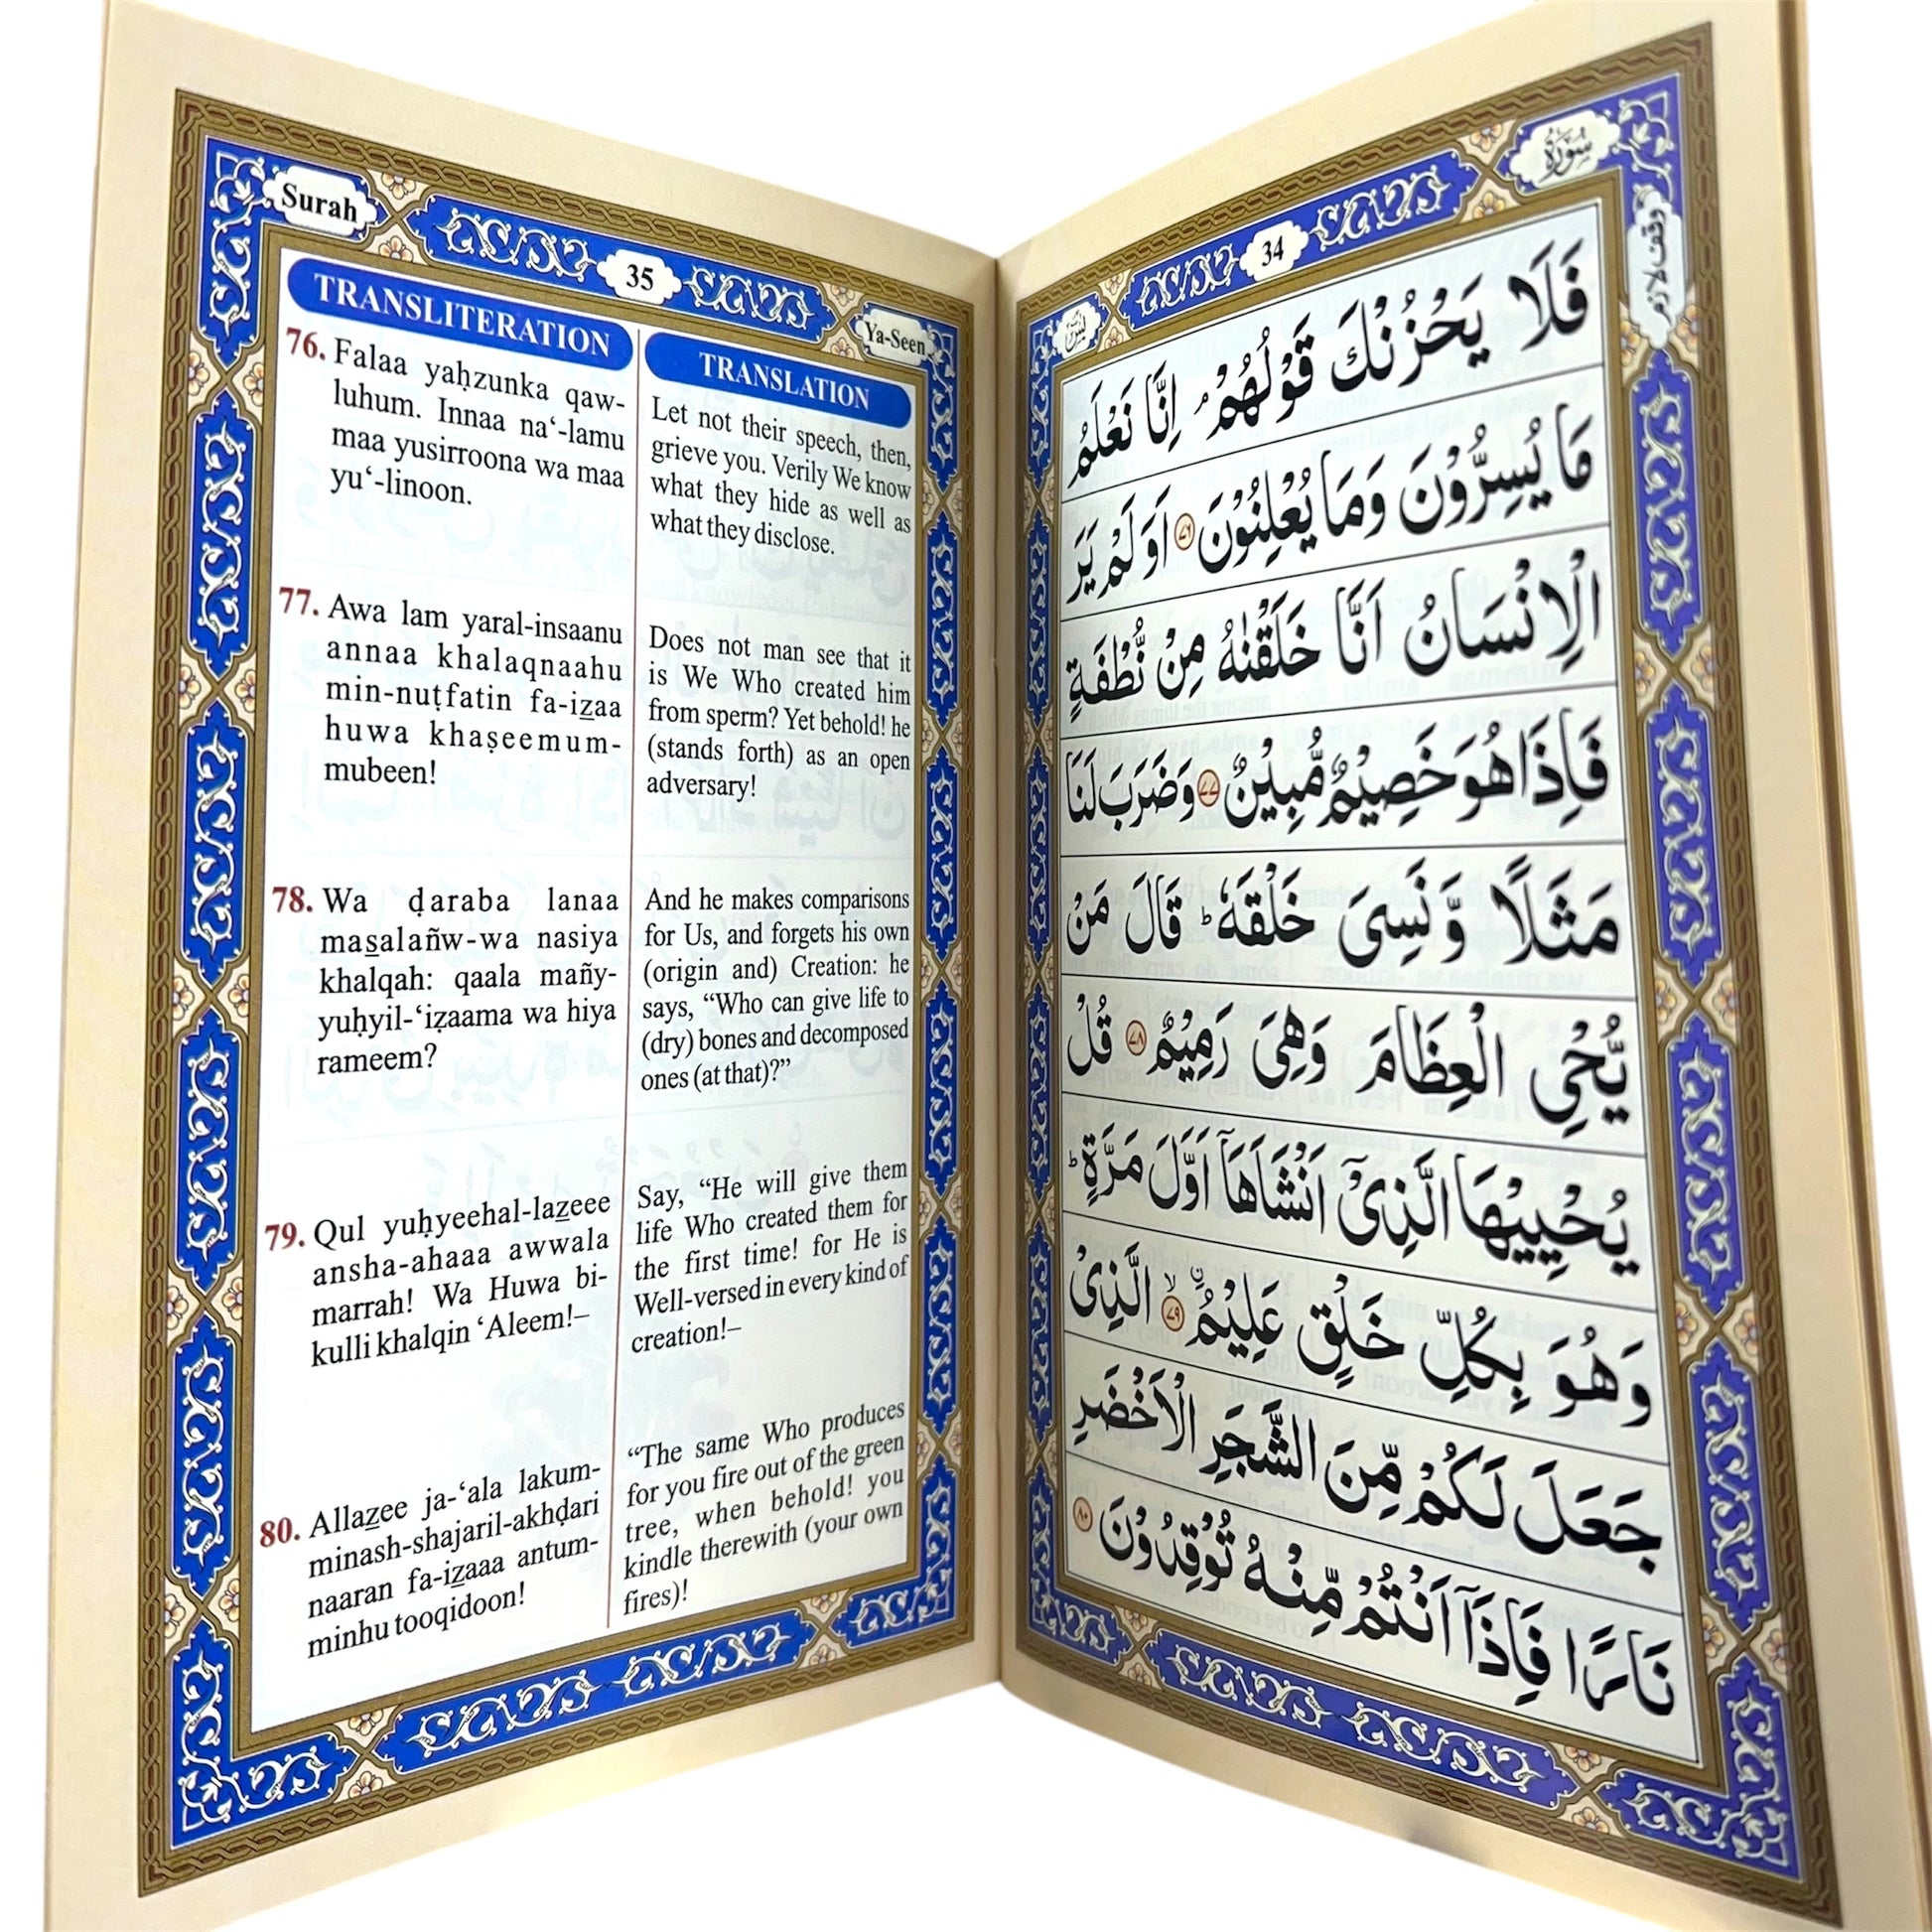 سُوْرَةُ
34
يٰسٓ
وقف لازم
فَلَا يَحْزُنْكَ قَوْلُهُمْ ۘ اِنَّا نَعْلَمُ
مَا يُسِرُّوْنَ وَمَا يُعْلِنُوْنَ ﴿٧٦﴾ اَوَلَمْ يَرَ
الْاِنْسَانُ اَنَّا خَلَقْنٰهُ مِنْ نُّطْفَةٍ
فَاِذَا هُوَ خَصِيْمٌ مُّبِيْنٌ ﴿٧٧﴾ وَضَرَبَ لَنَا
مَثَلًا وَّنَسِىَ خَلْقَهٗ ؕ قَالَ مَنْ
يُّحْىِ الْعِظَامَ وَهِىَ رَمِيْمٌ ﴿٧٨﴾ قُلْ
يُحْيِيْهَا الَّذِىْٓ اَنْشَاَهَآ اَوَّلَ مَرَّةٍ ؕ
وَهُوَ بِكُلِّ خَلْقٍ عَلِيْمُ ۨ ۙ ﴿٧٩﴾ الَّذِىْ
جَعَلَ لَكُمْ مِّنَ الشَّجَرِ الْاَخْضَرِ
نَارًا فَاِذَآ اَنْتُمْ مِّنْهُ تُوْقِدُوْنَ ﴿٨٠﴾
Surah
35
Ya-Seen
TRANSLITERATION
76. Falaa yaḥzunka qaw-
luhum. Innaa na‘-lamu
maa yusirroona wa maa
yu‘-linoon.
77. Awa lam yaral-insaanu
annaa khalaqnaahu
min-nuṭfatin fa-iz̲aa
huwa khaṣeemum-
mubeen!
78. Wa ḍaraba lanaa
mas̲alañw-wa nasiya
khalqah: qaala mañy-
yuḥyil-‘iẓaama wa hiya
rameem?
79. Qul yuḥyeehal-laz̲eee
ansha-ahaaa awwala
marrah! Wa Huwa bi-
kulli khalqin ‘Aleem!–
80. Allaz̲ee ja-‘ala lakum-
minash-shajaril-akhḍari
naaran fa-iz̲aaa antum-
minhu tooqidoon!
TRANSLATION
Let not their speech, then,
grieve you. Verily We know
what they hide as well as
what they disclose.
Does not man see that it
is We Who created him
from sperm? Yet behold! he
(stands forth) as an open
adversary!
And he makes comparisons
for Us, and forgets his own
(origin and) Creation: he
says, “Who can give life to
(dry) bones and decomposed
ones (at that)?”
Say, “He will give them
life Who created them for
the first time! for He is
Well-versed in every kind of
creation!–
“The same Who produces
for you fire out of the green
tree, when behold! you
kindle therewith (your own
fires)!